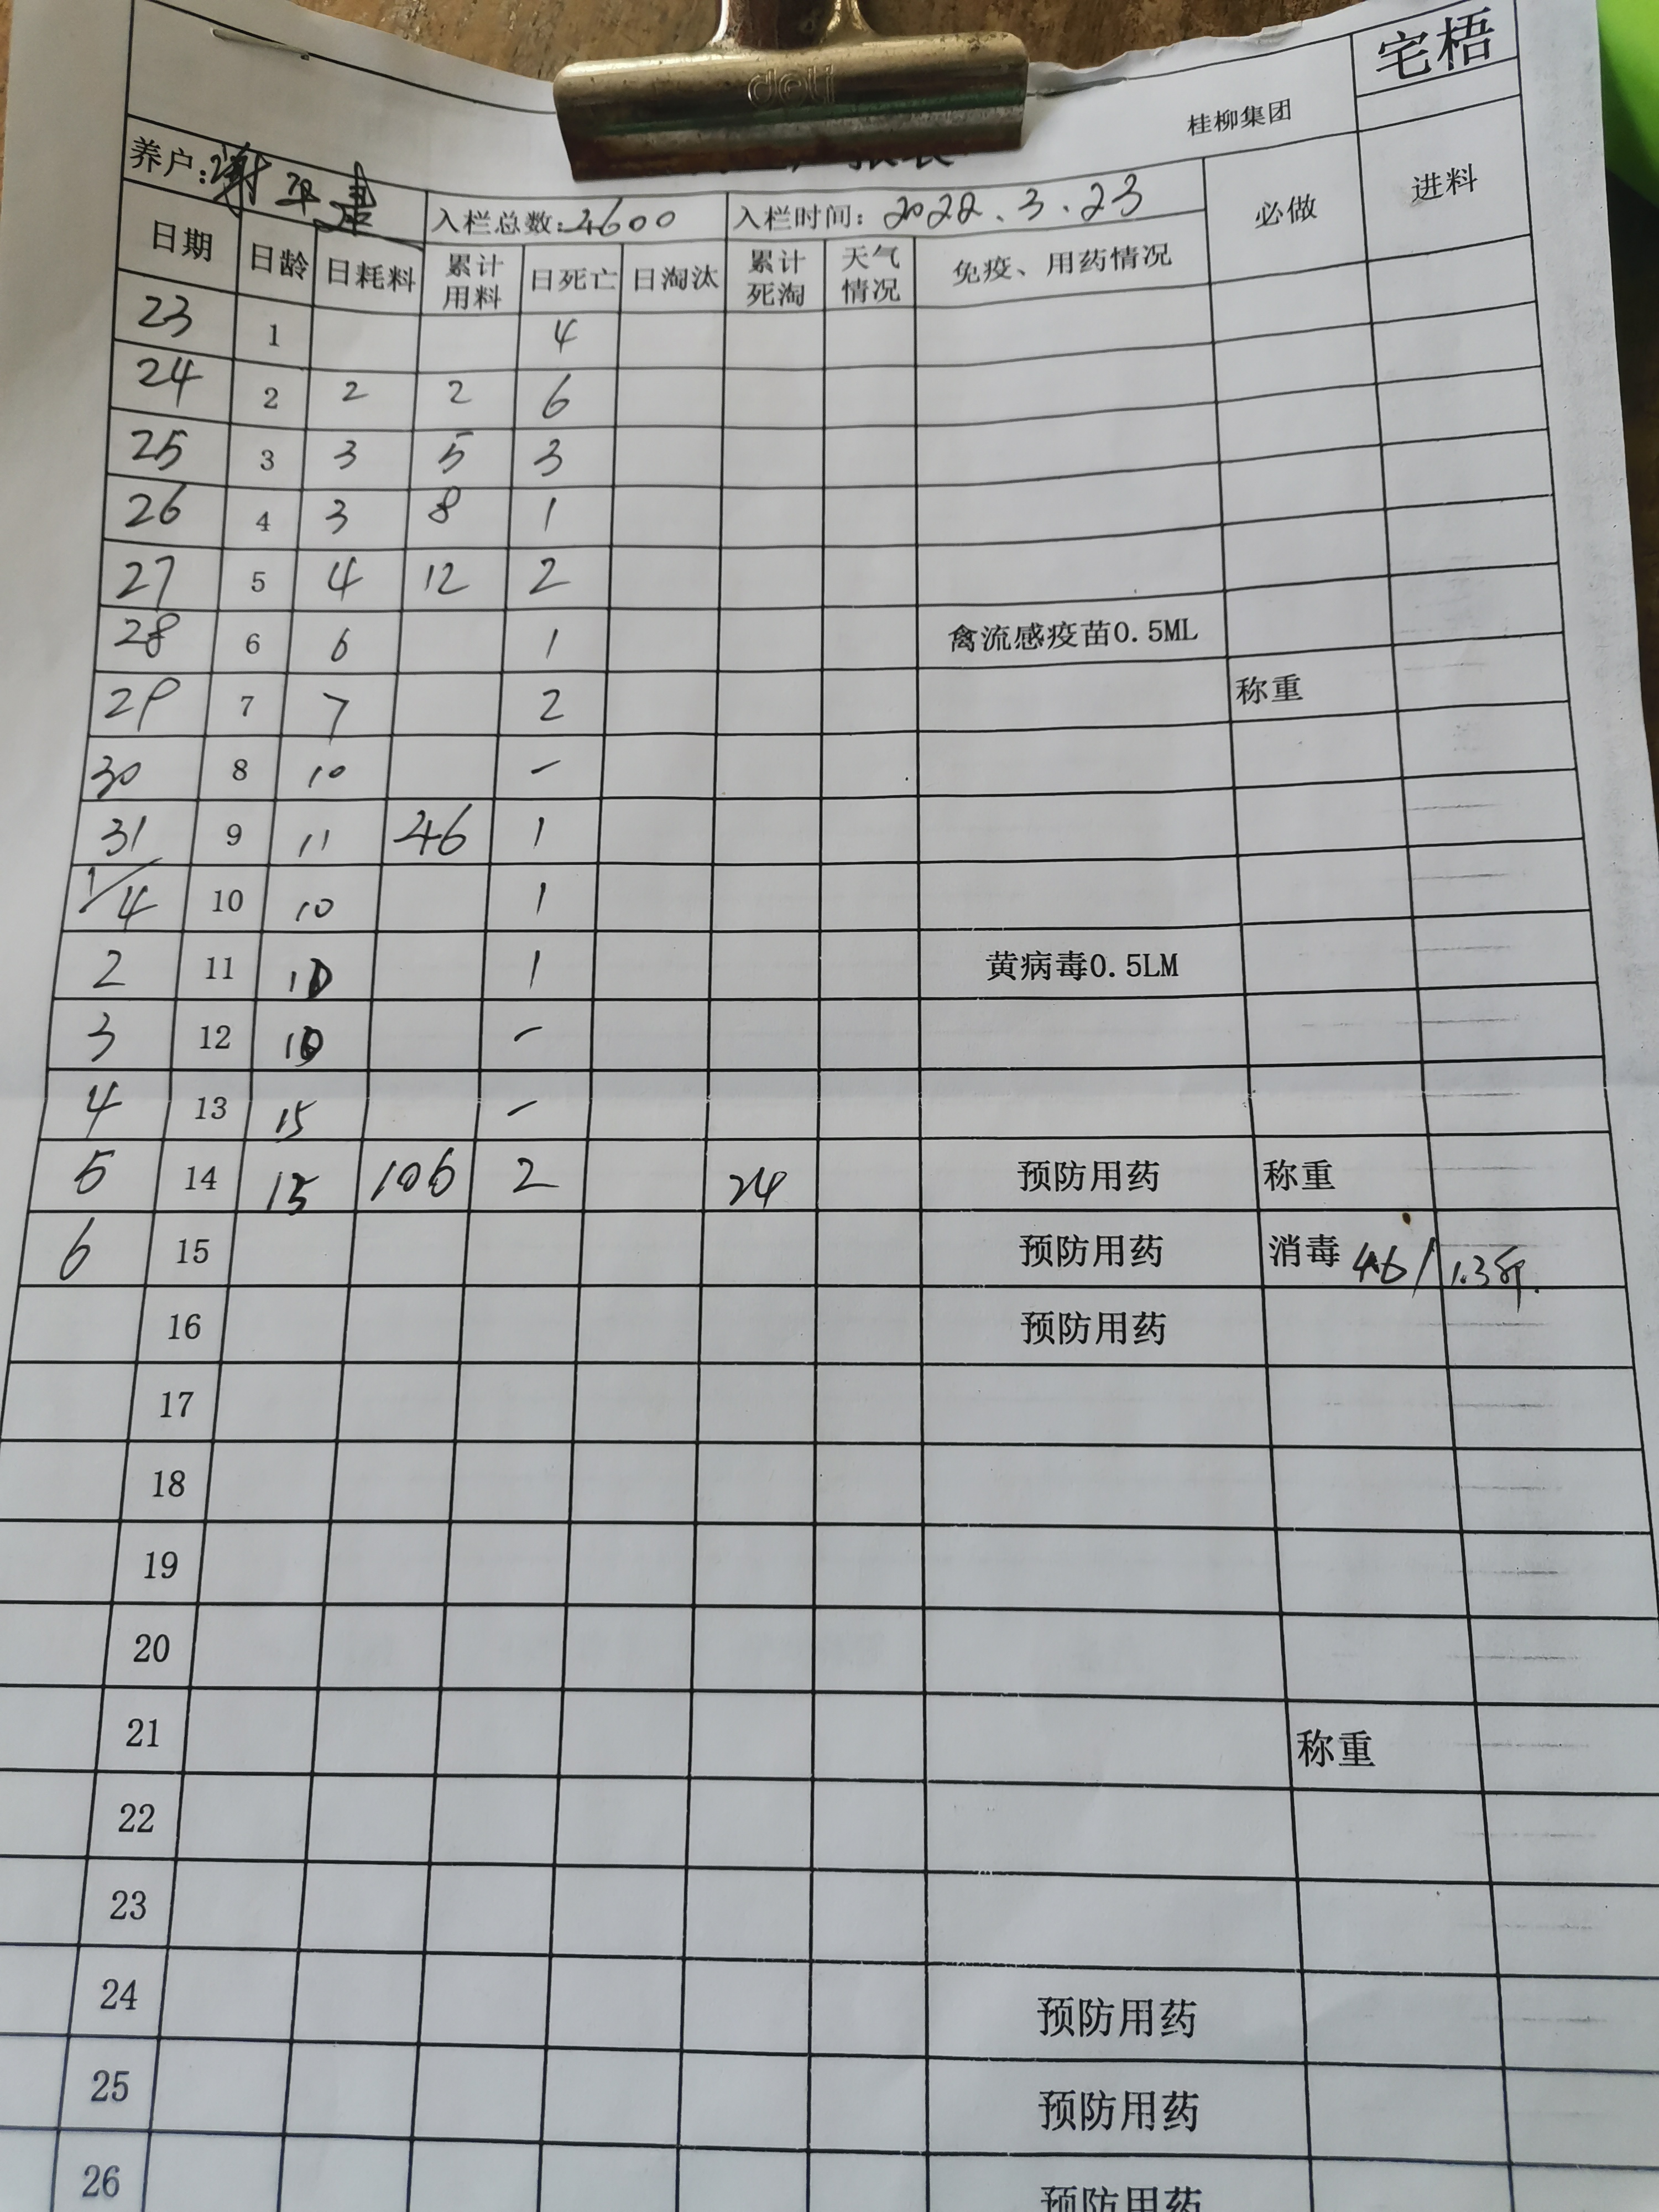 deli
宅梧
桂柳集团
养户:谢平建 入栏总数:4600 入栏时间:2022.3.23 必做 进料
日期 日龄 日耗料 累计用料 日死亡 日淘汰 累计死淘 天气情况 免疫、用药情况
23 1 4
24 2 2 2 6
25 3 3 5 3
26 4 3 8 1
27 5 4 12 2
28 6 6 1 禽流感疫苗0.5ML
29 7 7 2 称重
30 8 10 -
31 9 11 46 1
1/4 10 10 1
2 11 10 1 黄病毒0.5LM
3 12 10 -
4 13 15 -
5 14 15 106 2 24 预防用药 称重
6 15 预防用药 消毒 4.6/1.3斤.
16 预防用药
17
18
19
20
21 称重
22
23
24 预防用药
25 预防用药
26 预防用药